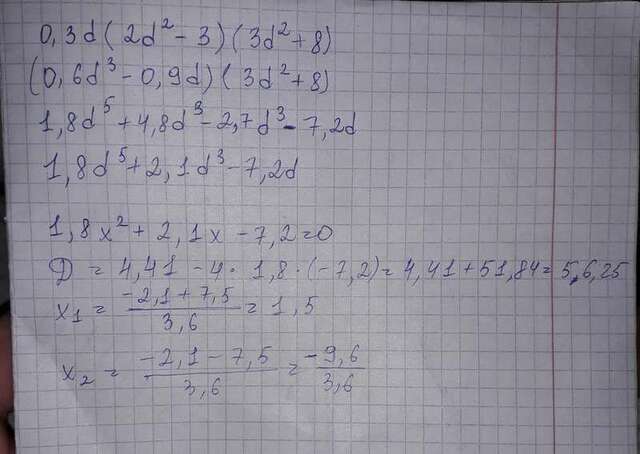 0,3d(2d² - 3)(3d² + 8)
(0,6d³ - 0,9d)(3d² + 8)
1,8d⁵ + 4,8d³ - 2,7d³ - 7,2d
1,8d⁵ + 2,1d³ - 7,2d
1,8x² + 2,1x - 7,2 = 0
Д = 4,41 - 4 · 1,8 · (-7,2) = 4,41 + 51,84 = 5,6,25
x₁ = (-2,1 + 7,5)/3,6 = 1,5
x₂ = (-2,1 - 7,5)/3,6 = -9,6/3,6